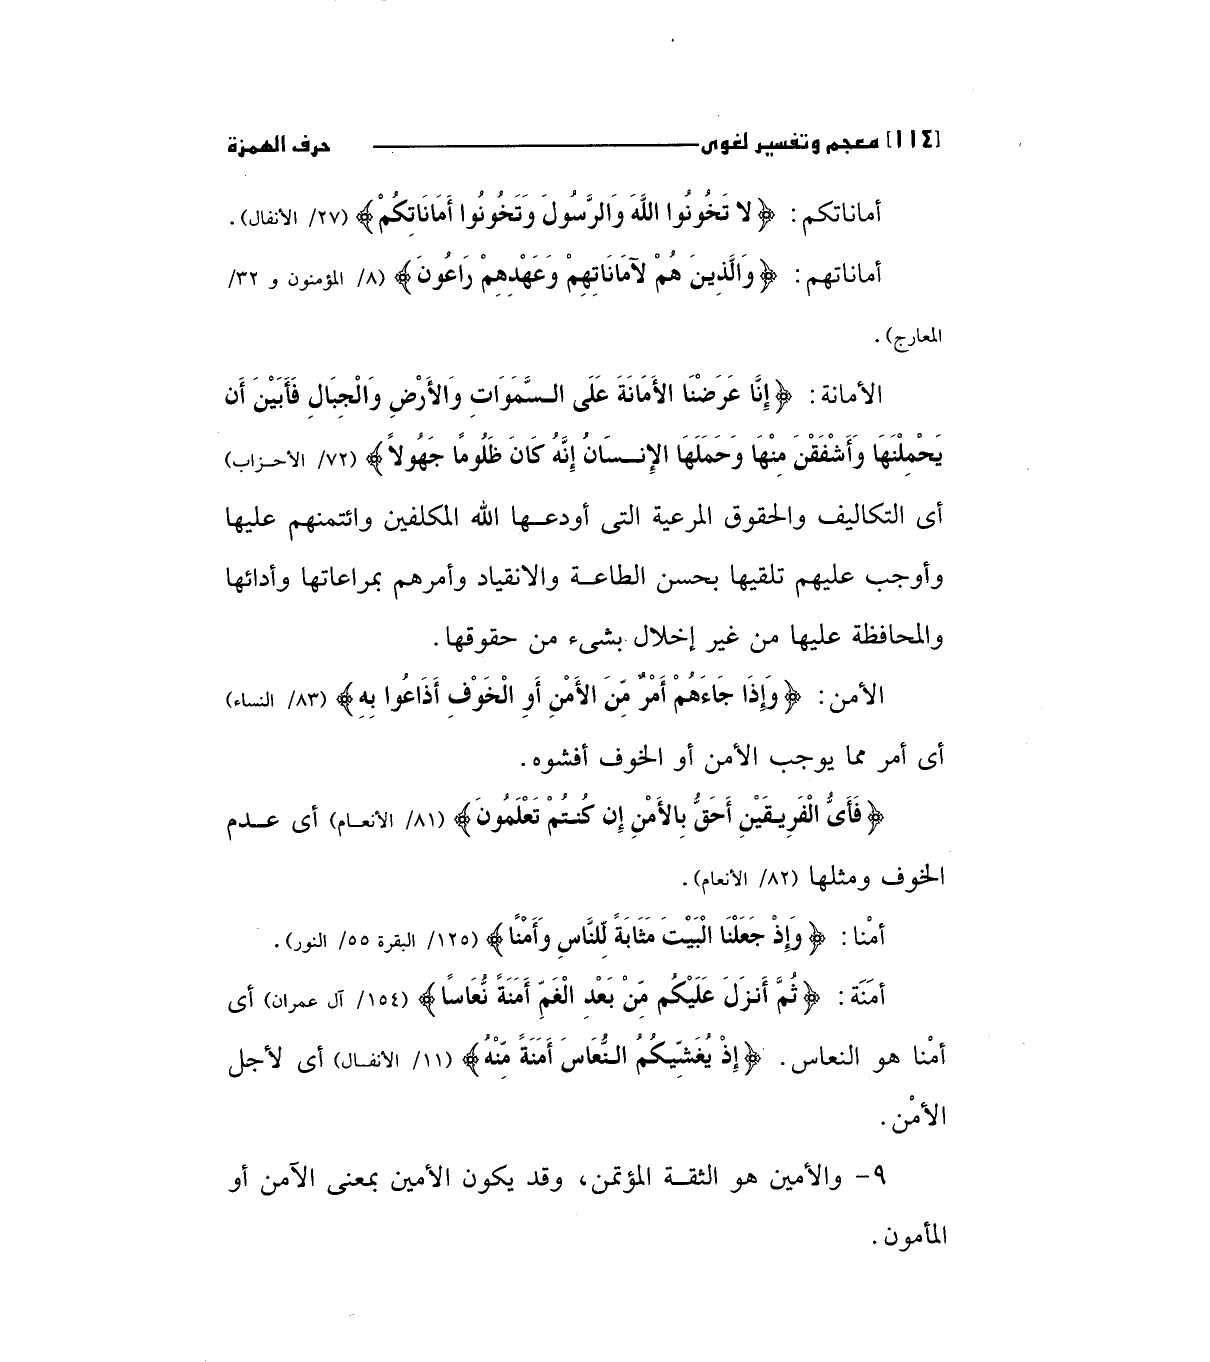 [١١٤] معجم وتفسير لغوى حرف الهمزة
أماناتكم: ﴿لا تَخُونُوا اللَّهَ وَالرَّسُولَ وَتَخُونُوا أَمَانَاتِكُمْ﴾ (٢٧/ الأنفال).
أماناتهم: ﴿وَالَّذِينَ هُمْ لأَمَانَاتِهِمْ وَعَهْدِهِمْ رَاعُونَ﴾ (٨/ المؤمنون و ٣٢/
المعارج).
الأمانة: ﴿إِنَّا عَرَضْنَا الأَمَانَةَ عَلَى السَّمَوَاتِ وَالأَرْضِ وَالْجِبَالِ فَأَبَيْنَ أَن
يَحْمِلْنَهَا وَأَشْفَقْنَ مِنْهَا وَحَمَلَهَا الإِنسَانُ إِنَّهُ كَانَ ظَلُومًا جَهُولاً﴾ (٧٢/ الأحزاب)
أى التكاليف والحقوق المرعية التى أودعها الله المكلفين وائتمنهم عليها
وأوجب عليهم تلقيها بحسن الطاعة والانقياد وأمرهم بمراعاتها وأدائها
والمحافظة عليها من غير إخلال بشىء من حقوقها.
الأمن: ﴿وَإِذَا جَاءَهُمْ أَمْرٌ مِّنَ الأَمْنِ أَوِ الْخَوْفِ أَذَاعُوا بِهِ﴾ (٨٣/ النساء)
أى أمر مما يوجب الأمن أو الخوف أفشوه.
﴿فَأَىُّ الْفَرِيقَيْنِ أَحَقُّ بِالأَمْنِ إِن كُنتُمْ تَعْلَمُونَ﴾ (٨١/ الأنعام) أى عدم
الخوف ومثلها (٨٢/ الأنعام).
أمْنا: ﴿وَإِذْ جَعَلْنَا الْبَيْتَ مَثَابَةً لِّلنَّاسِ وَأَمْنًا﴾ (١٢٥/ البقرة ٥٥/ النور).
أمَنَة: ﴿ثُمَّ أَنزَلَ عَلَيْكُم مِّنْ بَعْدِ الْغَمِّ أَمَنَةً نُّعَاسًا﴾ (١٥٤/ آل عمران) أى
أمْنا هو النعاس. ﴿إِذْ يُغَشِّيكُمُ النُّعَاسَ أَمَنَةً مِّنْهُ﴾ (١١/ الأنفال) أى لأجل
الأمْن.
٩- والأمين هو الثقة المؤتمن، وقد يكون الأمين بمعنى الآمن أو
المأمون.